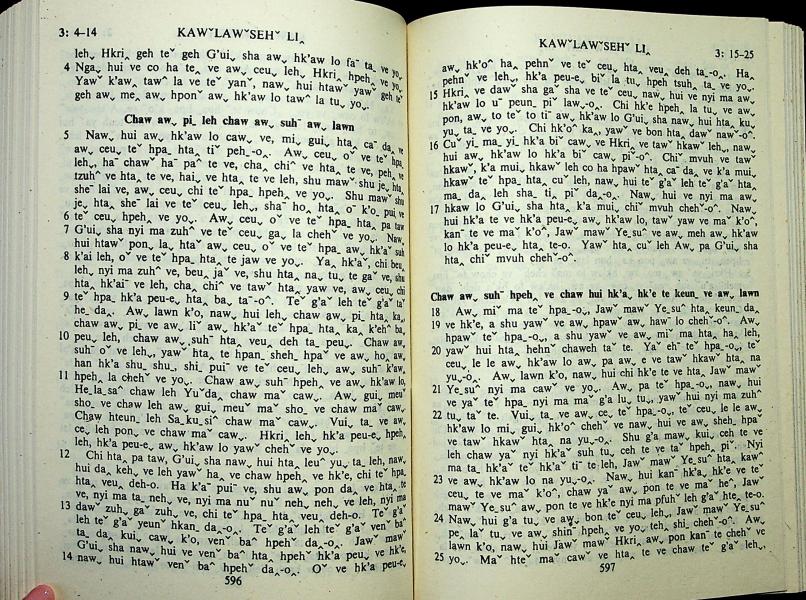 3: 4-14 KAWˇLAWˇSEHˇ LIꞈ
leh˯ Hkri˰ geh teˇ geh G'ui˯ sha aw˯ hk'aw lo faˉ ta˰ ve yo˯
4 Nga˯ hui ve co ha te˰ ve aw˯ ceu˰ leh˯ Hkri˰ hpeh˰ ve yo˯.
Yawˇ k'aw˰ tawˆ la ve teˇ yanˇ, nawˬ hui htawˇ yawˇ geh teˇ
geh aw˯ me˰ aw˯ hponˇ aw˯ hk'aw lo tawˆ la tu˯ yo˯.
Chaw aw˯ pi_ leh chaw aw˯ suhˉ aw˯ lawn
5 Naw˯ hui aw˯ hk'aw lo caw˯ ve, mi˯ gui˯ hta˰ caˉ da˰ ve
aw˯ ceu˰ teˇ hpa˰ hta˰ tiˇ peh_-o˰. Aw˯ ceu˰ oˇ ve teˇ hpa˰
leh˯, haˉ chawˇ haˉ paˆ te ve, cha˰ chiˆ ve hta˰ te ve, peh˰
tzuhˆ ve hta˰ te ve, hai˯ ve hta˰ te ve leh, shu mawˇ shu je˰ hta˰
sheˉ lai ve, aw˯ ceu˰ chi teˇ hpa˰ hpeh˰ ve yo˯. Shu mawˇ shu
je˰ htaꞈ sheˉ lai ve teˇ ceu˰ leh˯, shaˇ ho˰ hta˰ oˆ k'o˰ pui ve
6 teˇ ceu˰ hpehˇ ve yo˯. Aw˯ ceu˰ oˇ ve teˇ hpa˰ hta˰ pa taw
7 G'ui˯ sha nyi ma zuhˆ ve teˇ ceu˰ ga˰ la chehˇ ve yo˯. Naw˯
hui htawˇ pon˰ la˰ htaˇ aw˯ ceu˰ oˇ ve teˇ hpa˰ aw˯ hk'aˇ suh
8 k'ai leh, oˇ ve teˇ hpa˰ hta˰ te jaw ve yo˯. Ya˰ hk'aˇ, chi beu˰
leh˯ nyi ma zuhˆ ve, beu˰ jaˇ ve, shu hta˰ na˰ tu˰ te gaˇ ve, shu
hta˰ hk'aiˉ ve leh, cha˰ chiˆ ve tawˇ hta˰ yaw ve, aw˯ ceu˰ chi
9 teˇ hpa˰ hk'a peu-e˰ hta˰ ba˰ taˉ-o˰. Teˇ g'aˇ leh teˇ g'aˇ taˇ
he˰ da˰. Aw˯ lawn k'o, naw˯ hui leh, chaw aw˯ pi_ hta˰ ka˰,
chaw aw˯ pi˰ ve aw˯ liˇ aw˯ hk'aˇ teˇ hpa˰ hta˰ ka˰ k'ehˆ ba˰
10 peu˰ leh, chaw aw˯ suhˉ hta˰ veu˰ deh ta˰ peu˰. Chaw aw˯
suhˉ oˇ ve leh˯, yawˇ hta˰ te hpan˰ sheh_ hpa ve aw˯ ho˰ aw˯
han hk'a shu˰ shu˰, shi˰ puiˉ ve teˇ ceu˰ leh, aw˯ suhˉ k'aw˰
11 hpeh˰ la chehˇ ve yo˯. Chaw aw˯ suhˉ hpehˇ ve aw˯ hk'aw lo˰
He_la_saˆ chaw leh Yuˇda˰ chaw maˇ caw˯. Aw˯ gui˰ meuˇ
sho˰ ve chaw leh aw˯ gui˰ meuˇ maˇ sho˰ ve chaw maˇ caw˯.
Chaw hteun˰ leh Sa_ku_siˆ chaw maˇ caw˯. Vui˰ ta˰ ve aw˯
ce˯ leh pon˰ ve chaw maˇ caw˯. Hkri˰ leh, hk'a peu-e˰ hpeh˰
leh, hk'a peu-e˰ aw˯ hk'aw lo yawˇ chehˇ ve yo˯.
12 Chi hta˰ pa taw, G'ui˯ sha naw˯ hui hta˰ leuˆ yu˰ ta˰ leh, naw˯
hui da˰ keh˰ ve leh yawˇ ha˰ ve chaw hpeh˰ ve hk'e, chi teˇ hpa˰
hta˰ veu˰ deh-o. Ha k'aˇ puiˉ ve, shu aw˯ pon da˰ ve hta˰ te
ve, nyi ma ta˰ neh˰ ve, nyi ma nuˇ nuˇ neh˰ neh˰ ve leh, nyi ma
13 dawˇ zuh˰ gaˇ zuh˰ ve, chi teˇ hpa˰ hta˰ veu˰ deh-o. Teˇ g'aˇ
leh teˇ g'aˇ yeunˇ hkan˰ da˰-o˰. Teˇ g'aˇ leh teˇ g'aˇ venˇ baˆ
ta˰ da˰ kui˰ caw˰ k'o, venˇ baˆ hpehˇ da˰-o˰. Jawˇ mawˇ
G'ui˯ sha naw˯ hui ve venˇ baˆ hta˰ hpehˇ hk'a peu˰ ve hk'e,
14 naw˯ hui htawˇ venˇ baˆ hpehˇ da˰-o˰. Oˇ ve hk'a peu-e˰
596
KAWˇLAWˇSEHˇ LIꞈ 3: 15-25
aw˯ hk'oˆ ha˰ pehnˇ ve teˇ ceu˰ hta˰ veu˰ deh ta_-o˰. Ha˰
pehnˇ ve leh˯, hk'a peu-e˰ biˇ la tu˰ hpeh tsuh˰ ta˰ ve yo˯.
15 Hkri˰ ve dawˇ sha gaˇ sha ve teˇ ceu˰, naw˯ hui ve nyi ma aw˯
hk'aw lo uˉ peun˰ pi˰ law˯-o˰. Chi hk'e hpeh˰ la tu˰ ve aw˯
pon, aw˯ to teˇ to tiˉ aw˯ hk'aw lo G'ui˯ sha, naw˯ hui hta˰ ku˰
yu˰ ta˰ ve yo˯. Chi hk'oˆ ka˰, yawˇ ve bon hta˰ dawˇ nawˇ-o˰.
16 Cuˇ yi_ ma_yi_ hk'a biˇ caw˯ ve Hkri˰ ve tawˇ hkaw˰ leh˯, naw˯
hui aw˯ hk'aw lo hk'a biˇ caw˯ piˇ-o˰. Chi mvuh ve tawˇ
hkaw˰, k'a mui˯ hkawˇ leh co ha hpawˇ hta˰ caˉ da˰ ve k'a mui˯
hkawˇ teˇ hpa_ hta˰ cuˇ leh, naw˯ hui teˇ g'aˇ leh teˇ g'aˇ hta˰
ma˰ da˰ leh sha˰ ti˰ piˇ da˰-o˰. Naw˯ hui ve nyi ma aw˯
17 hkaw lo G'ui˯ sha hta˰ k'a mui˯ chiˇ mvuh chehˇ-o˰. Naw˯
hui hk'a te ve hk'a peu-e˰ aw˯ hk'aw lo, tawˇ yaw ve maˇ k'o˰,
kanˉ te ve maˇ k'o˰, Jawˇ mawˇ Ye_suˆ ve aw˯ meh aw˯ hk'aw
lo hk'a peu-e˰ hta˰ te-o. Yawˇ hta˰ cuˇ leh Aw˯ pa G'ui˯ sha
hta˰ chiˇ mvuh chehˇ-o˰.
Chaw aw˯ suhˉ hpeh˰ ve chaw hui hk'a˰ hk'e te keun_ ve aw˯ lawn
18 Aw˯ miˇ ma teˇ hpa_-o˯, Jawˇ mawˇ Ye_suˆ hta˰ keun_ da˰
19 ve hk'e, a shu yawˇ ve aw˯ hpawˇ aw˯ hawˉ lo chehˇ-o˰. Aw˯
hpawˇ teˇ hpa_-o˯, a shu yawˇ ve aw˯ miˇ ma hta˰ ha˰ leh,
20 yawˇ hui hta˰ hehnˇ chaweh taˇ te. Yaˇ ehˉ teˇ hpa_-o˯, teˇ
ceu˰ le le aw˯ hk'aw lo aw˯ pa aw˯ e ve tawˇ hkaw˰ hta˰ na
yu˰-o˰. Aw˯ lawn k'o, naw˯ hui chi hk'e te ve hta˰ Jawˇ mawˇ
21 Ye_suˆ nyi ma caw˯ ve yo˯. Aw˯ pa teˇ hpa_-o˯, naw˯ hui
ve yaˇ teˇ hpa˰ nyi ma maˇ g'a lu˰ tu˰, yawˇ hui nyi ma zuhˆ
22 tu˰ taˇ te. Vui˰ ta˰ ve aw˯ ce˯ teˇ hpa_-o˯, teˇ ceu˰ le le aw˯
hk'aw lo mi˯ gui˯ hk'oˆ chehˇ ve naw˯ hui ve aw˯ sheh_ hpaˇ
ve tawˇ hkawˇ hta˰ na yu˰-o˰. Shu g'a maw˰ kui˰ ceh te ve
leh chaw yaˇ nyi hk'aˇ suh tu˰ ceh te ve taˇ hpeh˰ piˇ. Nyi
ma ta˰ hk'aˇ teˇ hk'aˇ tiˉ te leh, Jawˇ mawˇ Ye_suˆ hta˰ kawˇ
23 ve aw˯ hk'aw lo na yu˰-o˰. Naw˯ hui kanˉ hk'a˰ hk'e ve teˇ
ceu˰ te ve maˇ k'oˆ, chaw yaˇ aw˯ pon te ve maˇ heˆ, Jawˇ
mawˇ Ye_suˆ aw˯ pon te ve hk'e nyi ma pfuhˇ leh g'aˇ hte˰ te-o.
24 Naw˯ hui g'a tu˰ ve aw˯ bonˇ teˇ ceu˰ leh˯, Jawˇ mawˇ Ye_suˆ
pe˰ laˇ tu˰ ve aw˯ shinˉ hpeh˰ ve yo˯ teh˰ shi˰ chehˇ-o˰. Aw˯
lawn k'o, naw˯ hui Jawˇ mawˇ Hkri˰ aw˯ pon kanˉ te chehˇ ve
25 yo˯. Maˇ hteˇ maˇ cawˇ ve hta˰ te ve chaw teˇ g'aˇ leh˯,
597